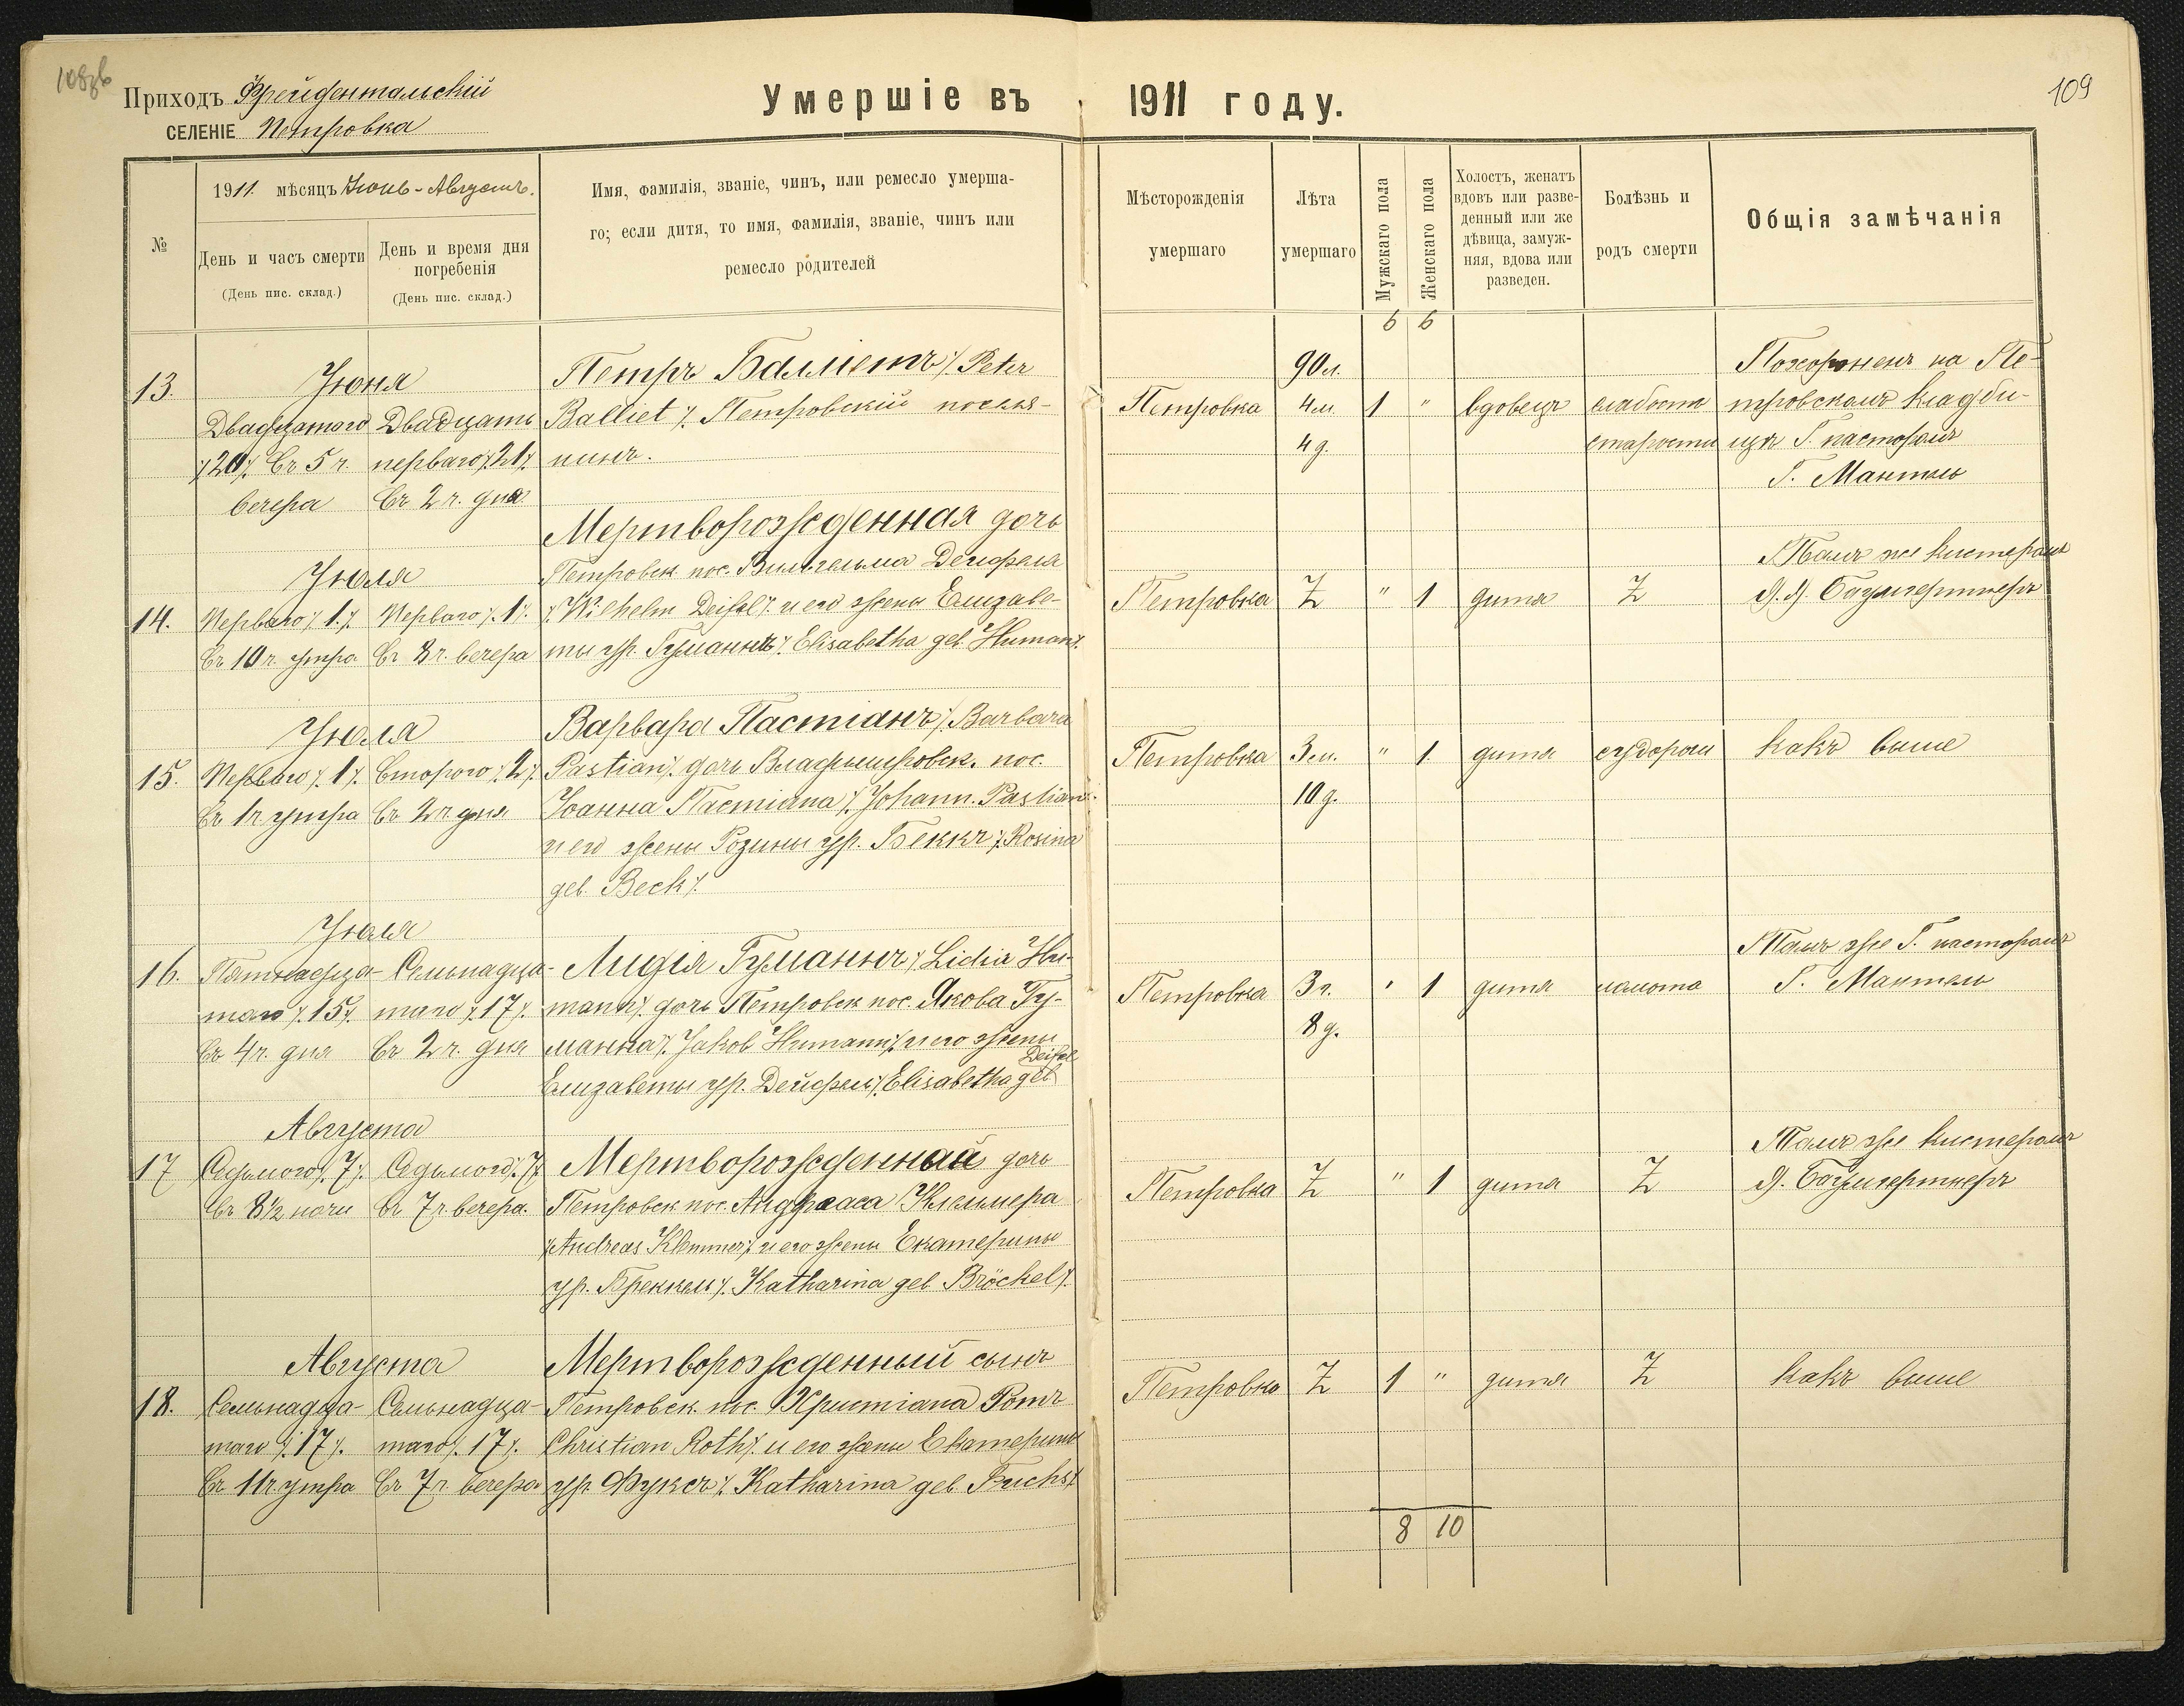 108об
109
Приходъ Фрейдентальскій
СЕЛЕНІЕ Петровка
Умершіе въ 1911 году.
№
1911 мѣсяцъ Іюнь-Августъ.
День и часъ смерти
(День пис. склад.)
День и время дня
погребенія
(День пис. склад.)
Имя, фамилія, званіе, чинъ, или ремесло умерша-
го; если дитя, то имя, фамилія, званіе, чинъ или
ремесло родителей
Мѣсторожденія
умершаго
Лѣта
умершаго
Мужскаго пола
Женскаго пола
Холостъ, женатъ
вдовъ или разве-
денный или же
дѣвица, замуж-
няя, вдова или
разведен.
Болѣзнь и
родъ смерти
Общія замѣчанія
6 6
13.
Іюня
Двадцатаго
/:20:/ Въ 5 ч.
вечера
Двадцать
перваго /:21:/
Въ 2 ч. дня
Петръ Балліетъ /: Peter
Balliet :/ Петровскій поселя-
нинъ.
Петровка
90 л.
4 м.
4 д.
1 "
вдовецъ
слабость
старости
Похороненъ на Пе-
тровскомъ кладби-
щѣ Г. пасторомъ
Г. Мантель
14.
Іюля
Перваго /:1:/
Въ 10 ч. утра
Перваго /:1:/
Въ 8 ч. вечера
Мертворожденная дочь
Петровск. пос. Вильгельма Дейфеля
/: Wilhelm Deifel :/ и его жены Елизаве-
ты ур. Гуманнъ /: Elisabetha geb. Humann :/
Петровка
Z
" 1
дитя
Z
Тамъ же кистеромъ
Я. Я. Баумгертнеръ
15.
Іюля
Перваго /:1:/
Въ 1 ч. утра
Второго /:2:/
Въ 2 ч. дня
Варвара Пастіанъ /: Barbara
Pastian :/ дочь Владимировск. пос.
Іоанна Пастіана /: Johann. Pastian :/
и его жены Розины ур. Беккъ /: Rosina
geb. Beck :/
Петровка
3 м.
10 д.
" 1
дитя
судороги
какъ выше
16.
Іюля
Пятнадца-
таго /:15:/
Въ 4 ч. дня
Семьнадца-
таго /:17:/
Въ 2 ч. дня
Лидія Гуманнъ /: Lidia Hu-
mann :/ дочь Петровск пос. Якова Гу-
манна /: Jakob Humann :/ и его жены
Елизаветы ур. Дейфель /: Elisabetha geb. Deifel
Петровка
3 г.
8 д.
" 1
дитя
Тамъ же Г. пасторомъ
Г. Мантель
17
Августа
Седьмого /:7:/
Въ 8½ ночи
Седьмого /:7:/
Въ 7 ч. вечера.
Мертворожденная дочь
Петровск пос. Андреаса Клеммера
/: Andreas Klemmer :/ и его жены Екатерины
ур. Бреккель /: Katharina geb. Bröckel :/
Петровка
Z
" 1
дитя
Z
Тамъ же кистеромъ
Я. Баумгертнеръ
18.
Августа
Семьнадца-
таго /:17:/
Въ 11 ч. утра
Семьнадца-
таго /:17:/
Въ 7 ч. вечера
Мертворожденный сынъ
Петровск. пос. Христіана Ротъ
Christian Roth :/ и его жены Екатерины
ур. Фуксъ /: Katharina geb. Fuchs :/
Петровка
Z
1 "
дитя
Z
какъ выше
8 10